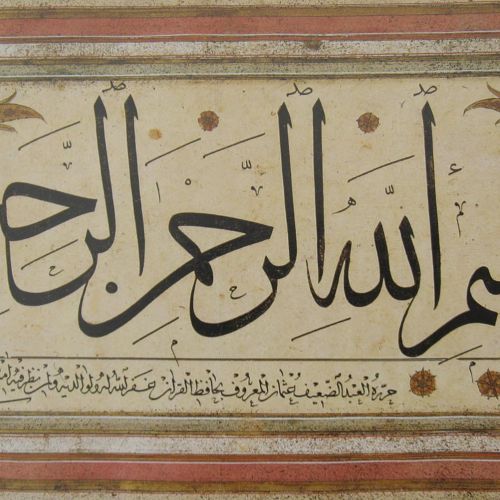 سم الله الرحمن الرح
حرره العبد الضعيف عثمان المعروف بحافظ القرآن غفر الله له ولوالديه ولمن نظر فيه